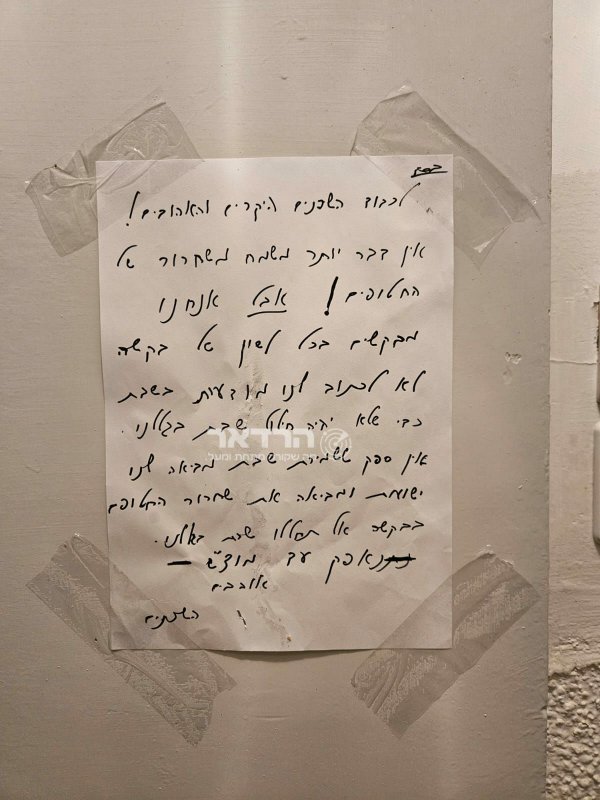 בס"ד
לכבוד השכנים היקרים והאהובים!
אין דבר יותר משמח משחרור של
החטופים! אבל אנחנו
מבקשים בכל לשון של בקשה
לא לכתוב לנו מודעות בשבת
כדי שלא יהיה חילול שבת בגללנו.
הרדאר
אין ספק ששמירת שבת מביאה לנו
ישועות ומביאה את שחרור החטופים
בבקשה אל תחללו שבת בגללנו.
נתאפק עד מוצ"ש -
אוהבים
השכנים